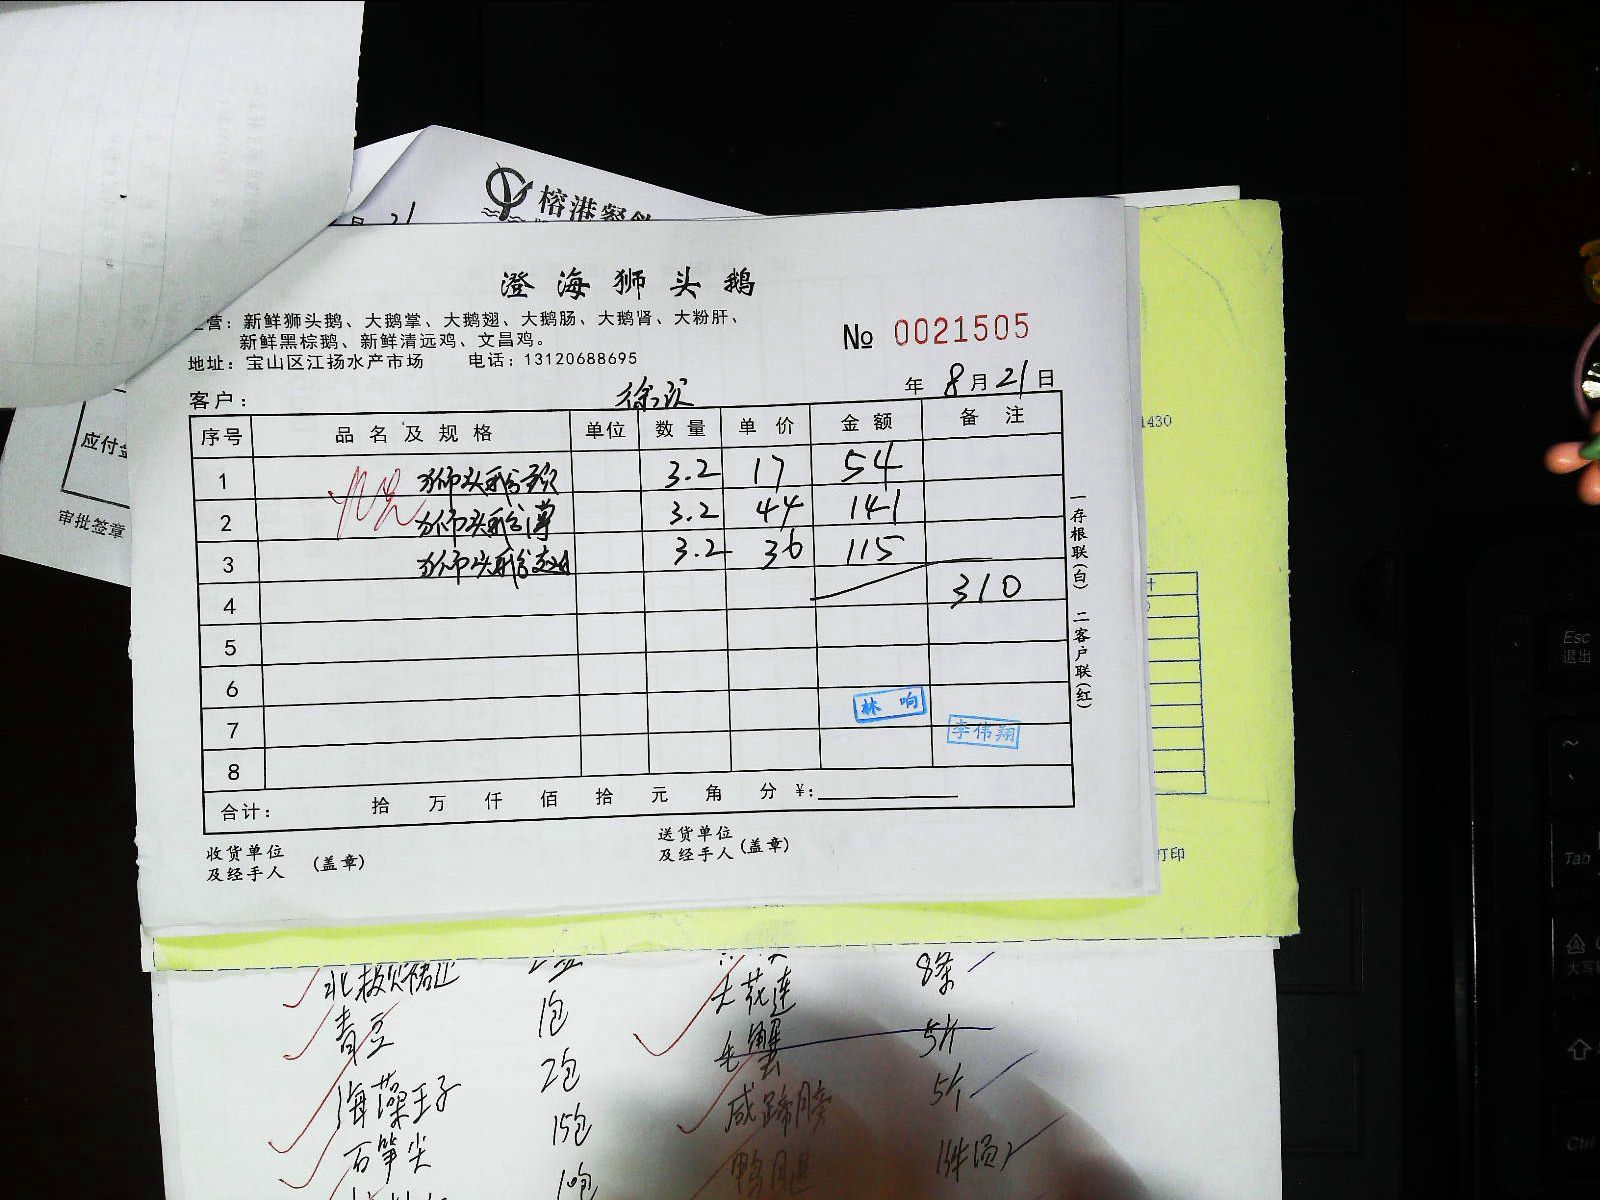 月 21
榕港餐飲
澄海狮头鹅
营：新鲜狮头鹅、大鹅掌、大鹅翅、大鹅肠、大鹅肾、大粉肝、
新鲜黑棕鹅、新鲜清远鸡、文昌鸡。
地址：宝山区江扬水产市场 电话：13120688695
№ 0021505
客户：
年 8月21日
序号 品名及规格 单位 数量 单价 金额 备注
1 狮头鹅 3.2 17 54
2 狮头鹅 3.2 44 141
3 狮头鹅 3.2 36 115
4 310
5
6
7
8
林响
李伟翔
合计： 拾 万 仟 佰 拾 元 角 分 ¥：
收货单位及经手人 （盖章）
送货单位及经手人 （盖章）
一存根联（白） 二客户联（红）
应付金
审批签章
1430
打印
青豆 1包
海藻王子 2包
石笋尖 15包
大花莲 8条
毛蟹 5斤
咸蹄膀 5个
鸭腿
Esc
退出
~
Tab